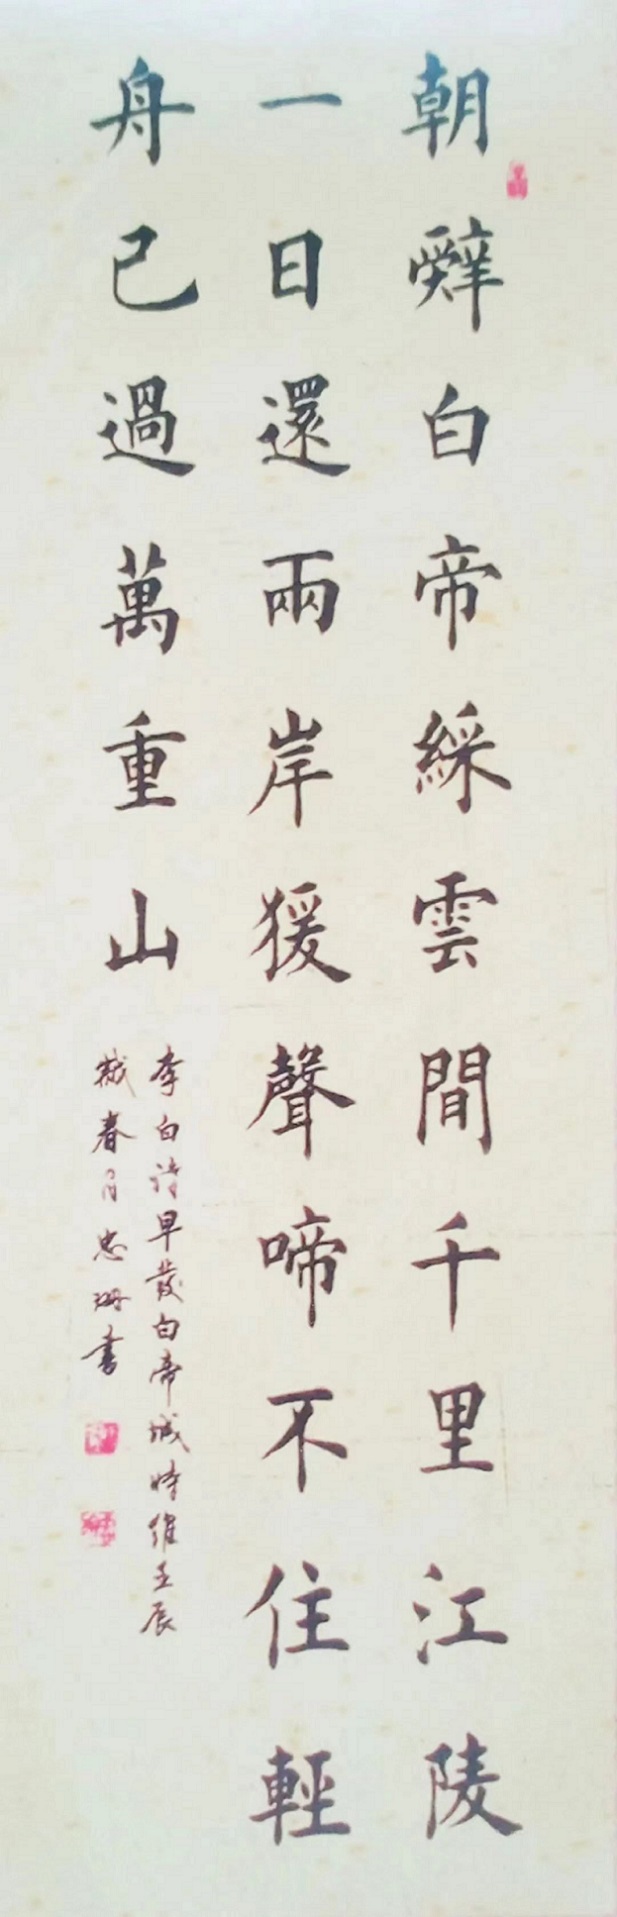 朝辤白帝綵雲間千里江陵
一日還兩岸猨聲啼不住輕
舟已過萬重山
李白诗早發白帝城時維壬辰
春月忠珊書